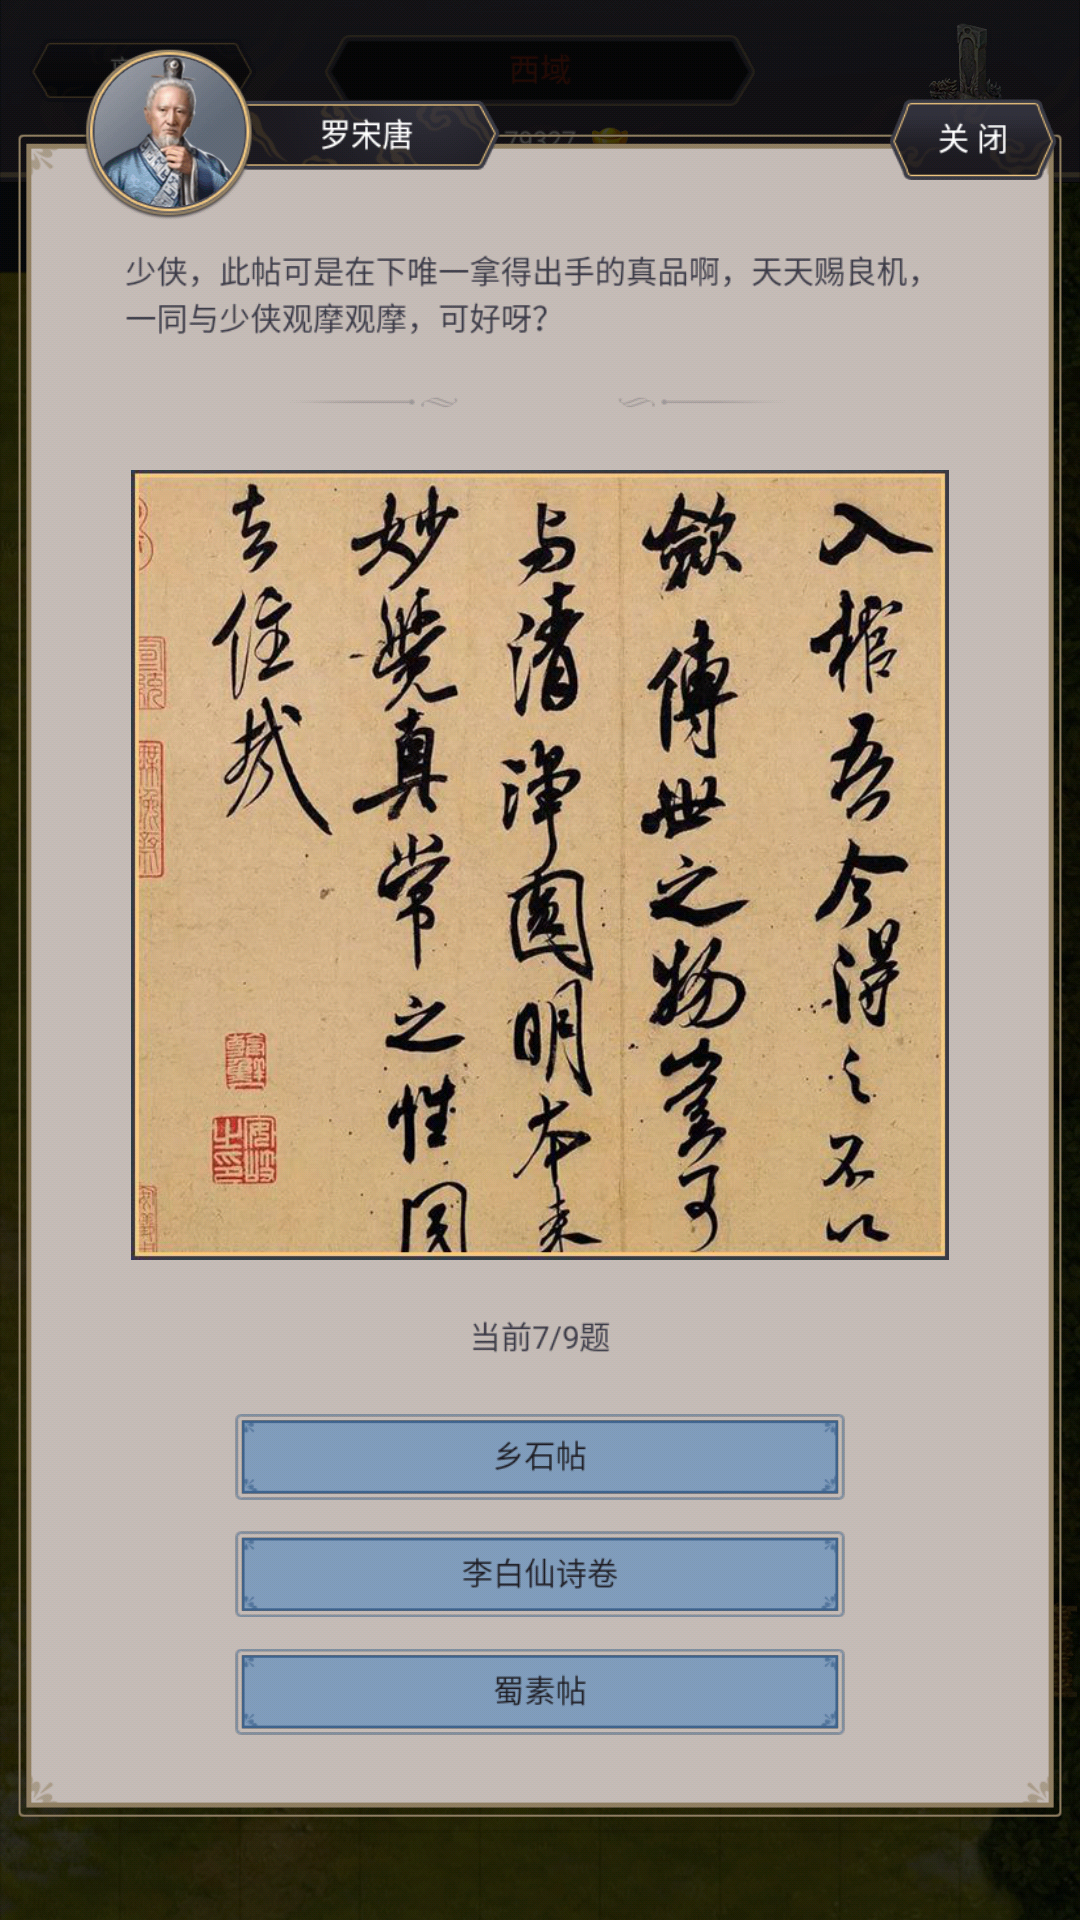 西域
罗宋唐
79327
关闭
少侠，此帖可是在下唯一拿得出手的真品啊，天天赐良机，
一同与少侠观摩观摩，可好呀？
入棺吾今得之不以
斂傳世之物豈可
与清淨圓明本来
妙覺真常之性同
去住哉
当前7/9题
乡石帖
李白仙诗卷
蜀素帖